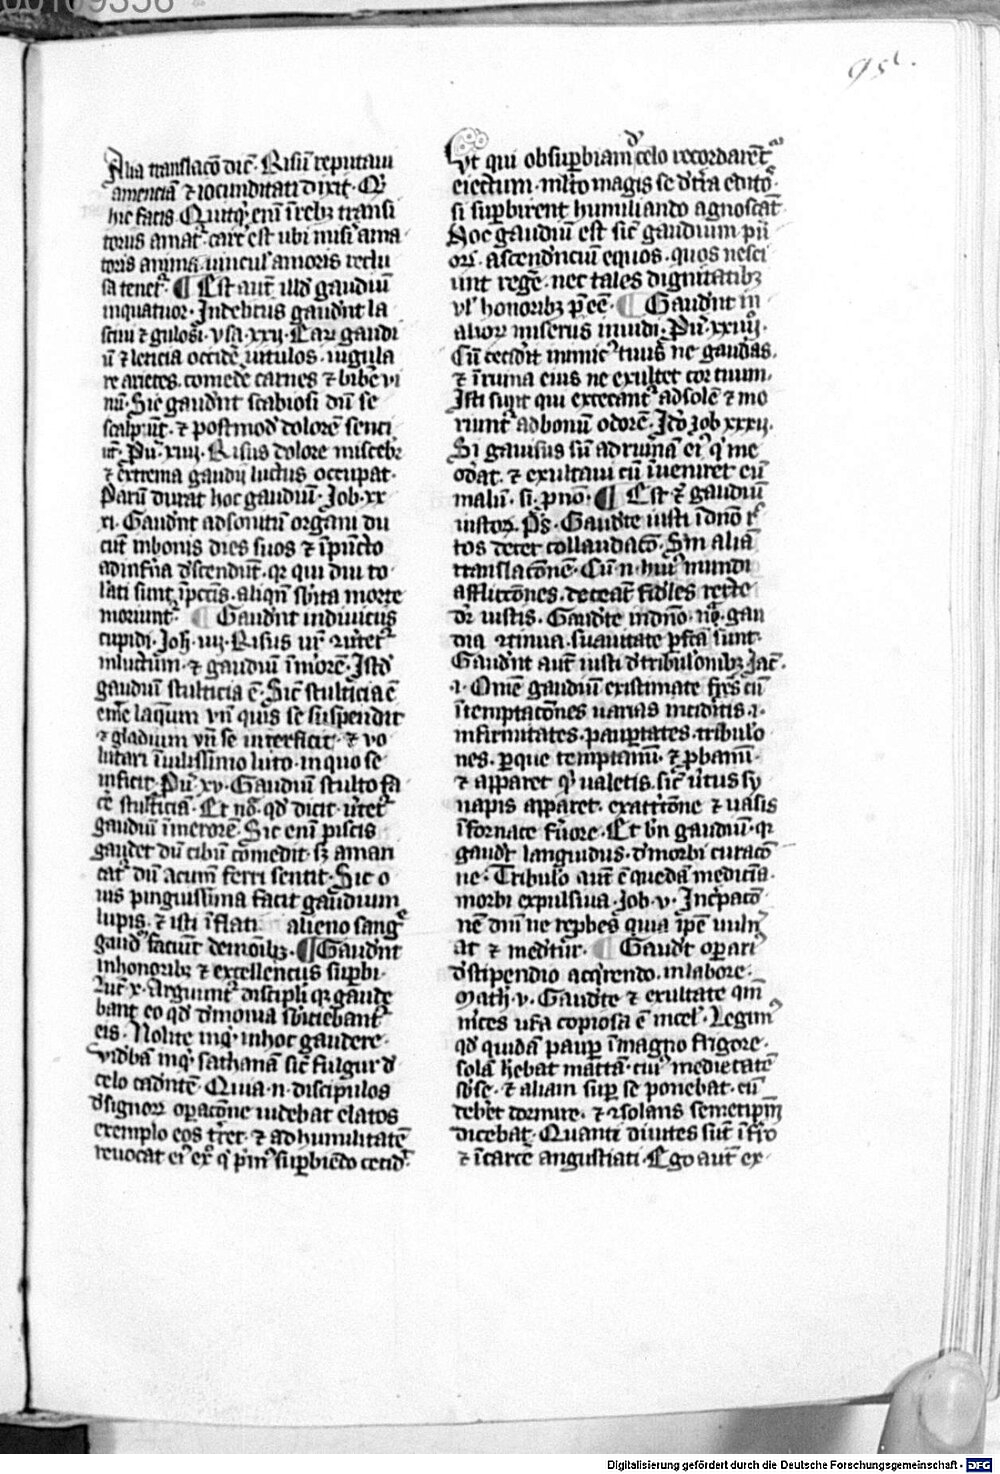 95c.
Alia translacõ dic̃. Risũ reputaui
amenciã ⁊ iocunditati dixit. Qͥ
hic facis. Quitqͥ eni ĩ reb; transi
torus amat᷑. carc̃ est ubi nusi ama
toris anima. uincul̾ amoris reclu
sa tenet᷑. ¶ Est aut̃ illd̾ gaudiũ
inquatuor. Indebitus gaudn̾t la
sciui ⁊ gulosi. ysa. xxij. Car gaudi
ũ ⁊ lencia occidẽ uitulos. iugula
re arietes. comedẽ carnes ⁊ bibẽ ui
nũ. Sic gaudn̾t scabiosi dũ se
scalpũt. ⁊ postmod̾ dolorẽ senci
ũt. Pu̾. xiiij. Risus dolore miscebr̾
⁊ extrema gaudij luctus occupat.
Parũ durat hoc gaudiũ. Job. xx
xi. Gaudn̾t adsonitũ organi du
cũt inbonis dies suos ⁊ ĩpũcto
adinfn̾a d̾scendũt. qr qui diu to
l̾ati sunt ĩpctĩs. aliqñ sb̾ita morte
moriunt᷑. ¶ Gaudn̾t indiuicijs
cupidi. Joh̾. iiij. Risus ur̃ ꝯu̾tet᷑
inluctum. ⁊ gaudiũ ĩ more̾. Istd̾
gaudiũ stulticia ẽ. Sic̃ stulticia ẽ
emẽ laqũm vñ quis se suspendit
⁊ gladium vñ se interficit. ⁊ vo
lutari ĩ uilissimo luto. in quo se
inficit. Pu̾. xv. Gaudiũ stulto fa
cẽ stulticiã. Et nõ. qd̾ dicit. u̾tet᷑
gaudiũ ĩ merorẽ. Sic eni piscis
gaudet dũ cibũ comedit. sz amari
cat᷑ dũ acum ferri sentit. Sic o
uis pinguissima facit gaudium
lupis. ⁊ isti ĩflati alieno sang̾
gaud̾ faciũt demoĩb;. ¶ Gaudn̾t
inhonorib; ⁊ excellencijs supb̾i.
Luc̃ x. Arguunt᷑ discipli qr gaude
bant eo qd̾ d̾monia sb̾iciebant᷑
eis. Nolite inqͥ inhoc gaudere.
vidb̾ã inqͥ sathanã sic̃ fulgur d̾
celo cadn̾tẽ. Quia .n. discipulos
d̾signorꝝ opacõne uidebat elatos
exemplo eos tr̾ret. ⁊ ad humilitatẽ
reuocat eiꝰ exͦ qͥ pͥmꝰ supbiẽdo cecid̾.
Vt qui obsupbiam d̾ celo recordarẽt᷑
eiectum. ml̾to magis se d̾ tr̃a editoꝰ
si supbirent humiliando agnoscãt.
Hoc gaudiũ est sic̃ gaudium pu̾
orꝝ. ascendn̾ciũ equos. quos nesci
unt rege̾. nec tales dignitatib;
vl̾ honorib; pẽẽ. ¶ Gaudn̾t in
aliorꝝ miserijs mũdi. Pu̾. xxiiij.
Cũ cecidi̾t inimicꝰ tuus ne gaudas.
⁊ ĩ ruina eius ne exultet cor tuum.
Isti sunt qui excecant᷑ adsolẽ ⁊ mo
riunt᷑ ad bonũ odorẽ. Jdͦ Job xxxij.
Si gauisus sũ ad ruinã eiꝰ qͥ me
od̾at. ⁊ exultaui cũ ĩueniret eũ
malũ. si. pnõ. ¶ Est ⁊ gaudiũ
iustorꝝ. Ps̾. Gaude̾te iusti ĩ dnõ rc̾
tos decet collaudacõ. Sm̾ aliã
translacõnẽ. Cũ .n. huiꝰ mundi
afflictões. deceãt fid̾les recte
dr̾ iustis. Gaude̾te indnõ. nã. gau
dia ꝯtinua. suauitate pfc̃a sunt.
Gaudn̾t aut̃ iusti d̾tribulõnib; Jac̃.
.i. Omẽ gaudiũ existimate fr̃s cũ
ĩ temptacõnes uarias incid̾itis .i.
infirmitates. pauptates. tribulõ
nes. pque temptamĩ. ⁊ pbamĩ.
⁊ apparet qͥ ualetis. sic̃ u̾tus sy
napis apparet. exattric̃õne ⁊ uasis
ĩ fornace fu̾ore. Et bñ gaudiũ. qr
gaude̾t languidus. d̾morbi curacõ
ne. Tribulõ aut̃ ẽ quedã medicĩa.
morbi expulsiua. Job. v. Jncpacõ
nẽ dni ne rephẽs. quia ipẽ uuln̾
at ⁊ mede̾tur. ¶ Gaudẽt opariꝰ
d̾ stipendio acqͥrendo. inlabore.
Math. v. Gaude̾te ⁊ exultate qm̃
m̾ces ur̃a copiosa ẽ in cel̾. Legimꝰ
qd̾ quidã paup ĩ magno frigore.
solã hẽbat mattã. cuiꝰ medietatẽ
sb̾se. ⁊ aliam sup se ponebat. cũ
debe̾t dormire. ⁊ ꝯsolans semetipm̃
dicebat. Quanti diuites sũt ĩ fr̃o
⁊ ĩ carcẽ angustiati. Ego aut̃ ex
Digitalisierung gefördert durch die Deutsche Forschungsgemeinschaft - DFG